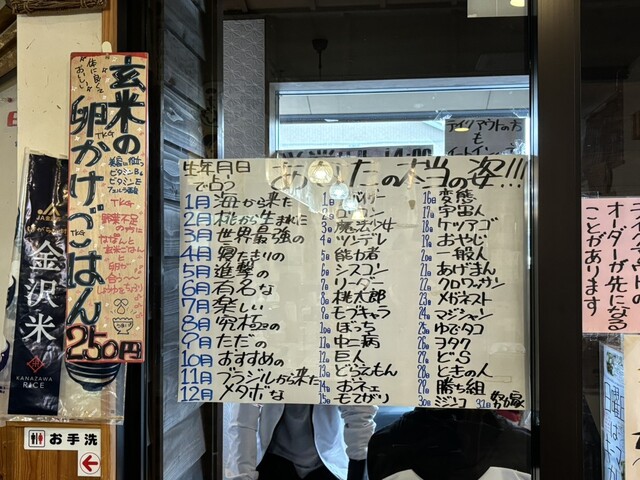 体に良くて
おいしい
玄米の
卵かけごはん
TKG
美容に役立つ
ビタミンB6
ビタミンE
フェルラ酸
TKG
野菜不足
の方に
なぜなら
玄米ごはん
と
卵が
合う〜
しょうゆをちょろり
TKG
250円
金沢米
KANAZAWA
RICE
お手洗
生年月日
で占う
あなたの本当の姿!!!
1月 海から来た
2月 桃から生まれた
3月 世界最強の
4月 見たきりの
5月 進撃の
6月 有名な
7月 楽しい
8月 究極の
9月 ただの
10月 おすすめの
11月 ブラジルから来た
12月 メタボな
3日 魔法少女
4日 ツンデレ
5日 能力者
6日 シスコン
7日 リーダー
8日 桃太郎
9日 モブキャラ
10日 ぼっち
11日 中二病
12日 巨人
13日 どらえもん
14日 オネェ
15日 もてがり
16日 変態
17日 宇宙人
18日 ケツアゴ
19日 おやじ
20日 一般人
21日 あげまん
22日 クロワッサン
23日 メガネスト
24日 マジシャン
25日 ゆでタコ
26日 ヲタク
27日 どS
28日 ときの人
29日 勝ち組
30日 ジンコ 31日 努力家
テイクアウトの方
も
オーダーが先になる
ことがあります